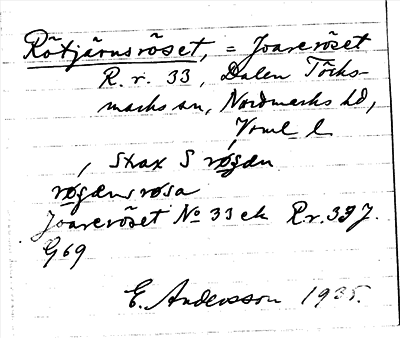 Rötjärnsröset, = Joareröset
R. r. 33, Dalen Töcks-
marks sn, Nordmarks hd,
Vrml l
, strax S
Joareröset No 33 ek R.r. 337.
G69
E. Andersson 1935.